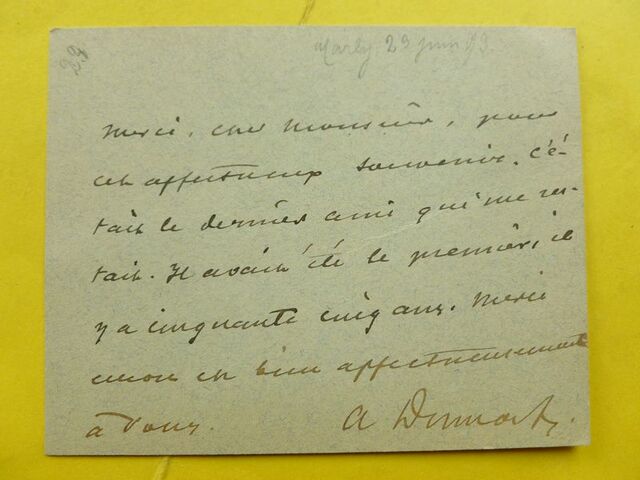 23
Marly 23 juin 93
Merci, cher Monsieur, pour
cet affectueux souvenir. C'é-
tait le dernier ami qui me res-
tait. Il avait été le premier, il
y a cinquante cinq ans. Merci
encore et bien affectueusement
à vous.
A Dumas f.